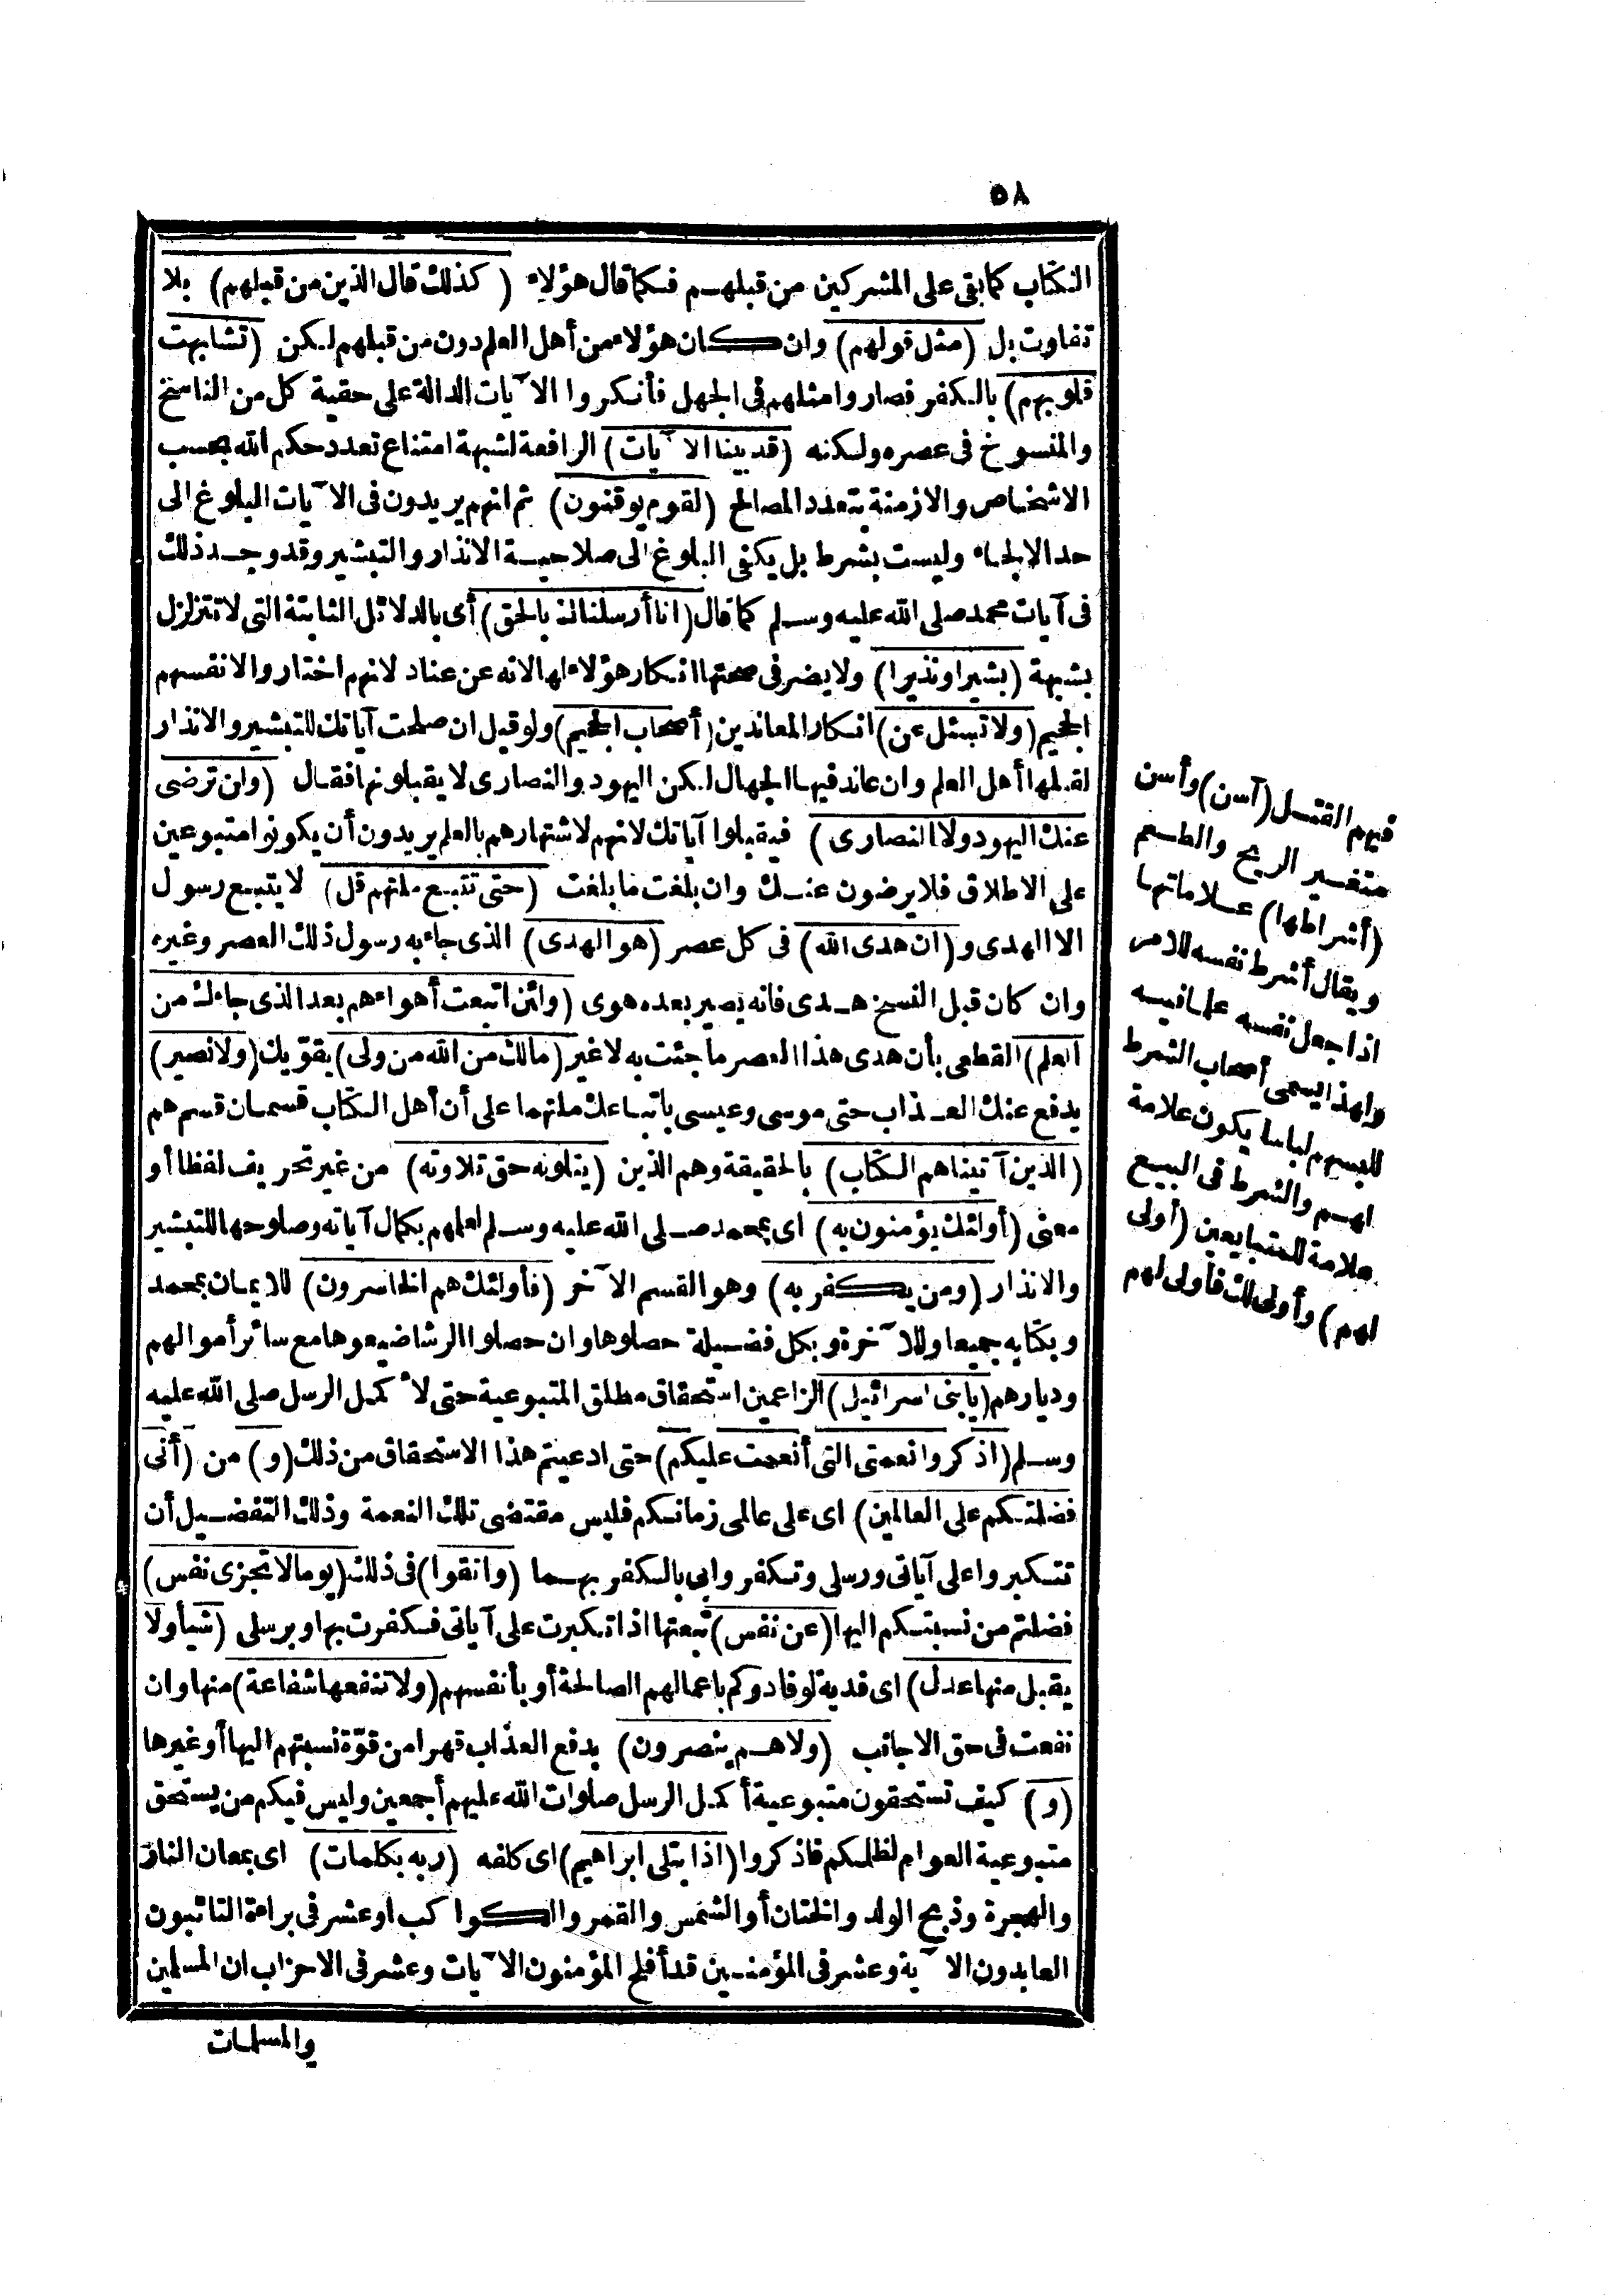 ٥٨
الكتاب كما بقى على المشركين من قبلهم فكما قال هؤلاء (كذلك قال الذين من قبلهم) بلا
تفاوت بل (مثل قولهم) وان كان هؤلاء من أهل العلم دون من قبلهم لكن (تشابهت
قلوبهم) بالكفر فصاروا مثلهم فى الجهل فأنكروا الآيات الدالة على حقية كل من الناسخ
والمنسوخ فى عصره ولكنه (قد بينا الآيات) الرافعة لشبهة امتناع تعدد حكم الله بحسب
الاشخاص والازمنة بتعدد المصالح (لقوم يوقنون) ثم انهم يريدون فى الآيات البلوغ الى
حد الالجاء وليست بشرط بل يكفى البلوغ الى صلاحية الانذار والتبشير وقد وجد ذلك
فى آيات محمد صلى الله عليه وسلم كما قال (انا أرسلناك بالحق) أى بالدلائل الثابتة التى لا تتزلزل
بشبهة (بشيرا ونذيرا) ولا يضر فى صحتها انكار هؤلاء لها لانه عن عناد لانهم اختاروا لانفسهم
الجحيم (ولا تسئل عن) انكار المعاندين (أصحاب الجحيم) ولو قيل ان صلحت آياتك للتبشير والانذار
لقبلها أهل العلم وان عاند فيها الجهال لكن اليهود والنصارى لا يقبلونها فقال (وان ترضى
عنك اليهود ولا النصارى) فيقبلوا آياتك لانهم لاشتهارهم بالعلم يريدون أن يكونوا متبوعين
على الاطلاق فلا يرضون عنك وان بلغت ما بلغت (حتى تتبع ملتهم قل) لا يتبع رسول
الا الهدى و (ان هدى الله) فى كل عصر (هو الهدى) الذى جاء به رسول ذلك العصر وغيره
وان كان قبل النسخ هدى فانه يصير بعده هوى (ولئن اتبعت أهواءهم بعد الذى جاءك من
العلم) القطعى بأن هدى هذا العصر ما جئت به لا غير (مالك من الله من ولى) يقوّيك (ولا نصير)
يدفع عنك العذاب حتى موسى وعيسى باتباعك ملتهما على أن أهل الكتاب قسمان قسم هم
(الذين آتيناهم الكتاب) بالحقيقة وهم الذين (يتلونه حق تلاوته) من غير تحريف لفظا أو
معنى (أولئك يؤمنون به) اى بمحمد صلى الله عليه وسلم لعلمهم بكمال آياته وصلوحها للتبشير
والانذار (ومن يكفر به) وهو القسم الآخر (فأولئك هم الخاسرون) للايمان بمحمد
وبكتابه جميعا وللآخرة وبكل فضيلة حصلوها وان حصلوا الرشا ضيعوها مع سائر أموالهم
وديارهم (يا بنى اسرائيل) الزاعمين استحقاق مطلق المتبوعية حتى لأكمل الرسل صلى الله عليه
وسلم (اذكروا نعمتى التى أنعمت عليكم) حتى ادعيتم هذا الاستحقاق من ذلك (و) من (أنى
فضلتكم على العالمين) اى على عالمى زمانكم فليس مقتضى تلك النعمة وذلك التفضيل أن
تتكبروا على آياتى ورسلى وتكفروا بى بالكفر بهما (واتقوا) فى ذلك (يوما لا تجزى نفس)
فضلتم من نسبتكم اليها (عن نفس) تبعتها اذا تكبرت على آياتى فكفرت بها وبرسلى (شيأ ولا
يقبل منها عدل) اى فدية لو فادوكم باعمالهم الصالحة أو بأنفسهم (ولا تنفعها شفاعة) منها وان
نفعت فى حق الاجانب (ولا هم ينصرون) بدفع العذاب قهرا من قوّة نسبتهم اليها أو غيرها
(و) كيف تستحقون متبوعية أكمل الرسل صلوات الله عليهم أجمعين وليس فيكم من يستحق
متبوعية العوام لظلمكم فاذكروا (اذ ابتلى ابراهيم) اى كلفه (ربه بكلمات) اى بمعان النار
والهجرة وذبح الولد والختان أو الشمس والقمر والكواكب او عشر فى براءة التائبون
العابدون الآية وعشر فى المؤمنين قد أفلح المؤمنون الآيات وعشر فى الاحزاب ان المسلمين
والمسلمات
فيهم القتل (آسن) وأسن
متغير الريح والطعم
(أشراطها) علاماتها
ويقال أشرط نفسه للامر
اذا جعل نفسه علما فيه
ولهذا يسمى أصحاب الشرط
للبسهم لباسا يكون علامة
لهم والشرط فى البيع
علامة للمتبايعين (أولى
لهم) وأولى لك فأولى لهم